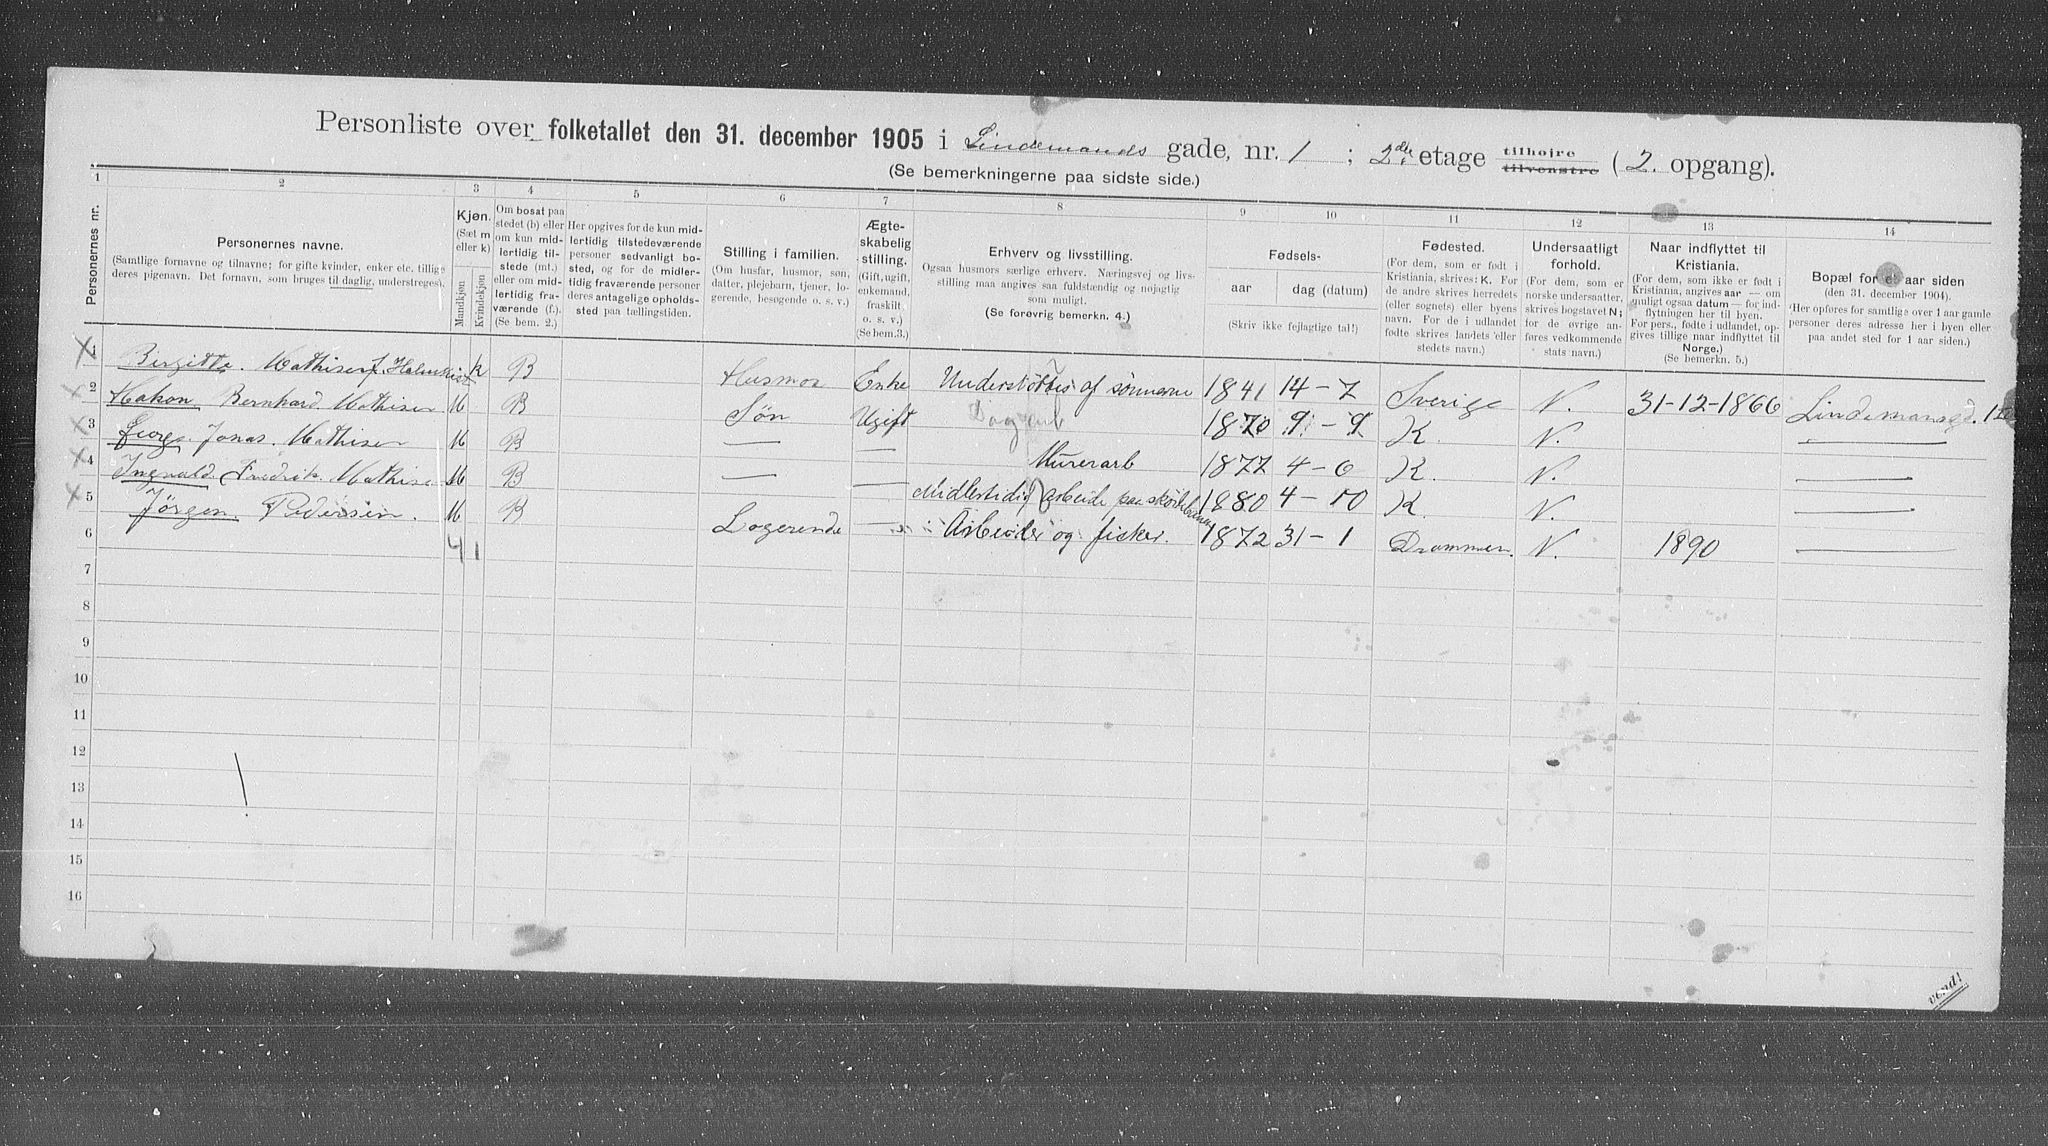 Personliste over folketallet den 31. december 1905 i Lindemands gade, nr. 1 ; 2den etage tilhøire tilvenstre (2. opgang).
(Se bemerkningerne paa sidste side.)
1 2 3 4 5 6 7 8 9 10 11 12 13 14
Personernes nr.
Personernes navne.
(Samtlige fornavne og tilnavne; for gifte kvinder, enker etc. tillige
deres pigenavn. Det fornavn, som bruges til daglig, understreges).
Kjøn.
(Sæt m
eller k)
Mandkjøn
Kvindekjøn
Om bosat paa
stedet (b) eller
om kun mid-
lertidig til-
stede (mt.)
eller om mid-
lertidig fra-
værende (f.).
(Se bem. 2.)
Her opgives for de kun mid-
lertidig tilstedeværende
personer sedvanligt bo-
sted, og for de midler-
tidig fraværende personer
deres antagelige opholds-
sted paa tællingstiden.
Stilling i familien.
(Om husfar, husmor, søn,
datter, plejebarn, tjener, lo-
gerende, besøgende o. s. v.)
Ægte-
skabelig
stilling.
(Gift, ugift,
enkemand,
fraskilt
o. s. v.)
(Se bem.3.)
Erhverv og livsstilling.
Ogsaa husmors særlige erhverv. Næringsvej og livs-
stilling maa angives saa fuldstændig og nøjagtig
som muligt.
(Se forøvrig bemerkn. 4.)
Fødsels-
aar
dag (datum)
(Skriv ikke fejlagtige tal!)
Fødested.
(For dem, som er født i
Kristiania, skrives: K. For
de andre skrives herredets
(eller sognets) eller byens
navn. For de i udlandet
fødte skrives landets eller
stedets navn.)
Undersaatligt
forhold.
(For dem, som er
norske undersaatter,
skrives bogstavet N;
for de øvrige an-
føres vedkommende
stats navn.)
Naar indflyttet til
Kristiania.
(For dem, som ikke er født i
Kristiania, angives aar — om
muligt ogsaa datum — for ind-
flytningen her til byen.
For pers., fødte i udlandet, op-
gives tillige naar indflyttet til
Norge.)
(Se bemerkn. 5.)
Bopæl for et aar siden
(den 31. december 1904).
(Her opføres for samtlige over 1 aar gamle
personer deres adresse her i byen eller
paa andet sted for 1 aar siden.)
1 Birgitte Mathisen f. Holmkvist k B Husmor Enke Understøttes af sønnerne 1841 14-7 Sverige N. 31-12-1866 Lindemansgd.
2 Hakon Bernhard Mathisen M B Søn Ugift Dagarb 1870 9-9 K. N. —
3 Georg Jonas Mathisen M B — — Murerarb 1877 4-6 K. N. —
4 Ingvald Fredrik Mathisen M B — — Midlertidig arbeide paa 1880 4-10 K. N. —
5 Jörgen Pedersen. M B Logerende — Arbeider og fisker. 1872 31-1 Drammen. N. 1890 —
6 4 1
7
8
9
10
11
12
13
14
15
16
vend!